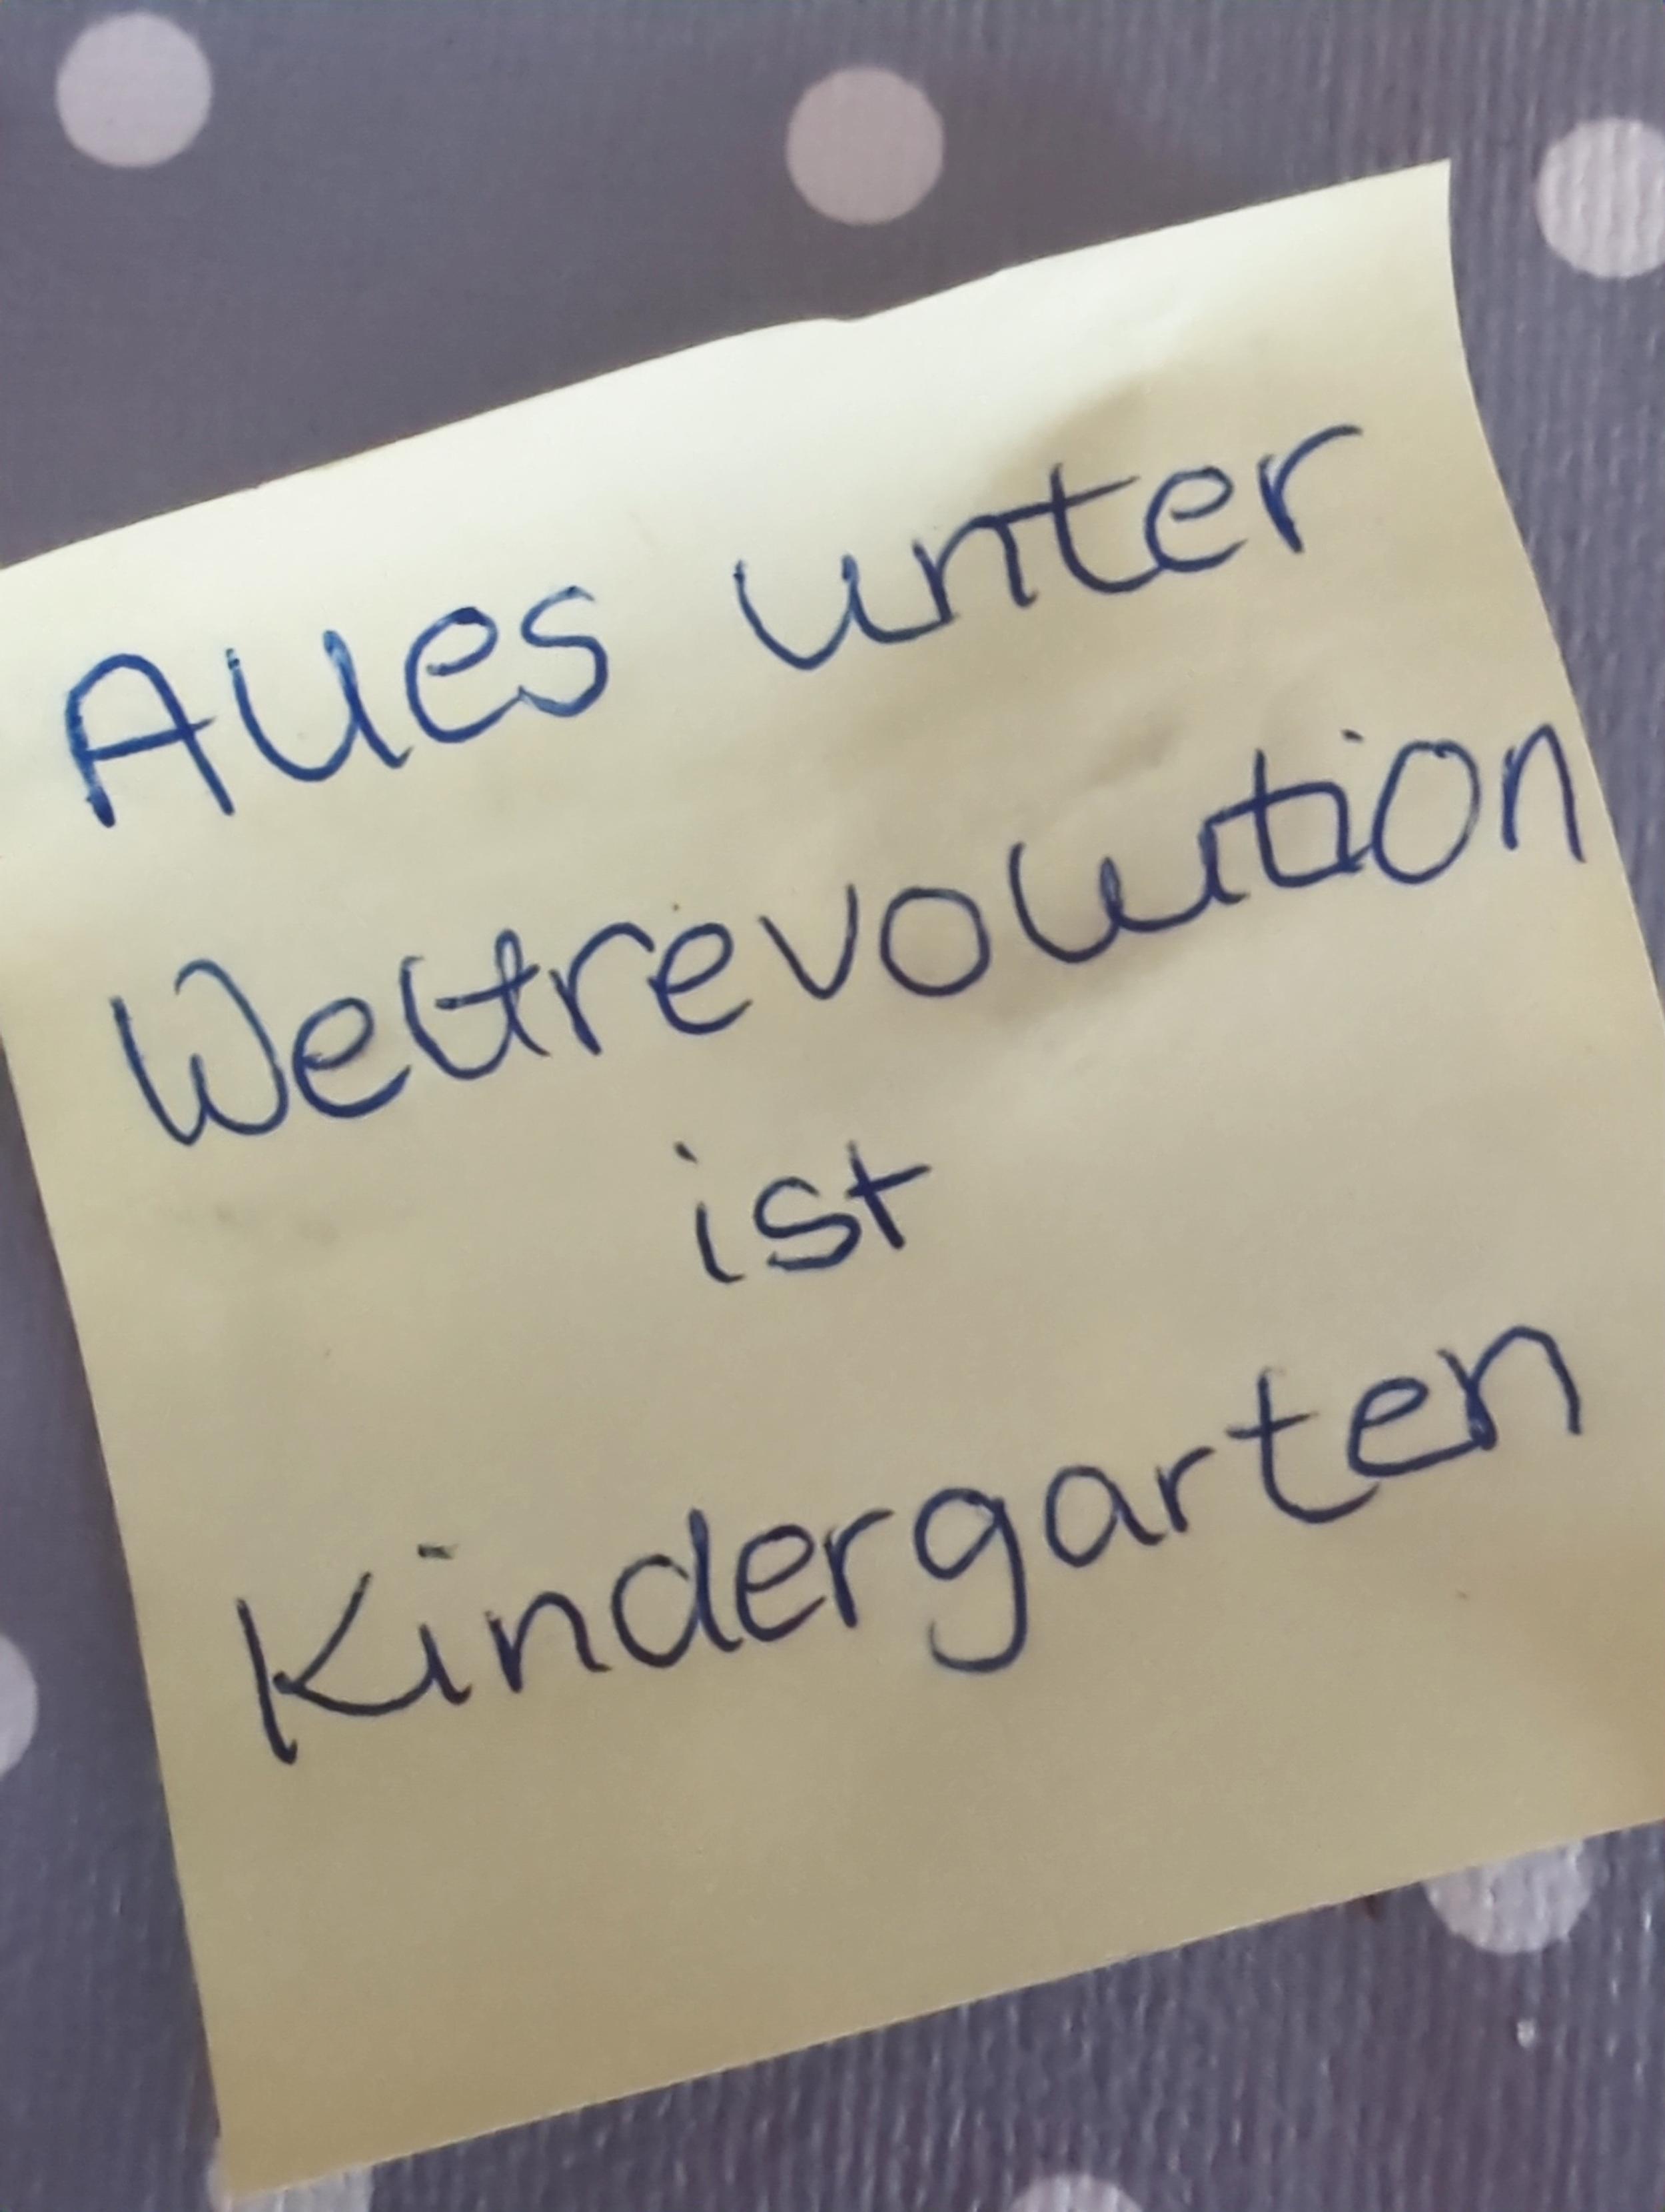 Alles unter
Weltrevolution
ist
Kindergarten